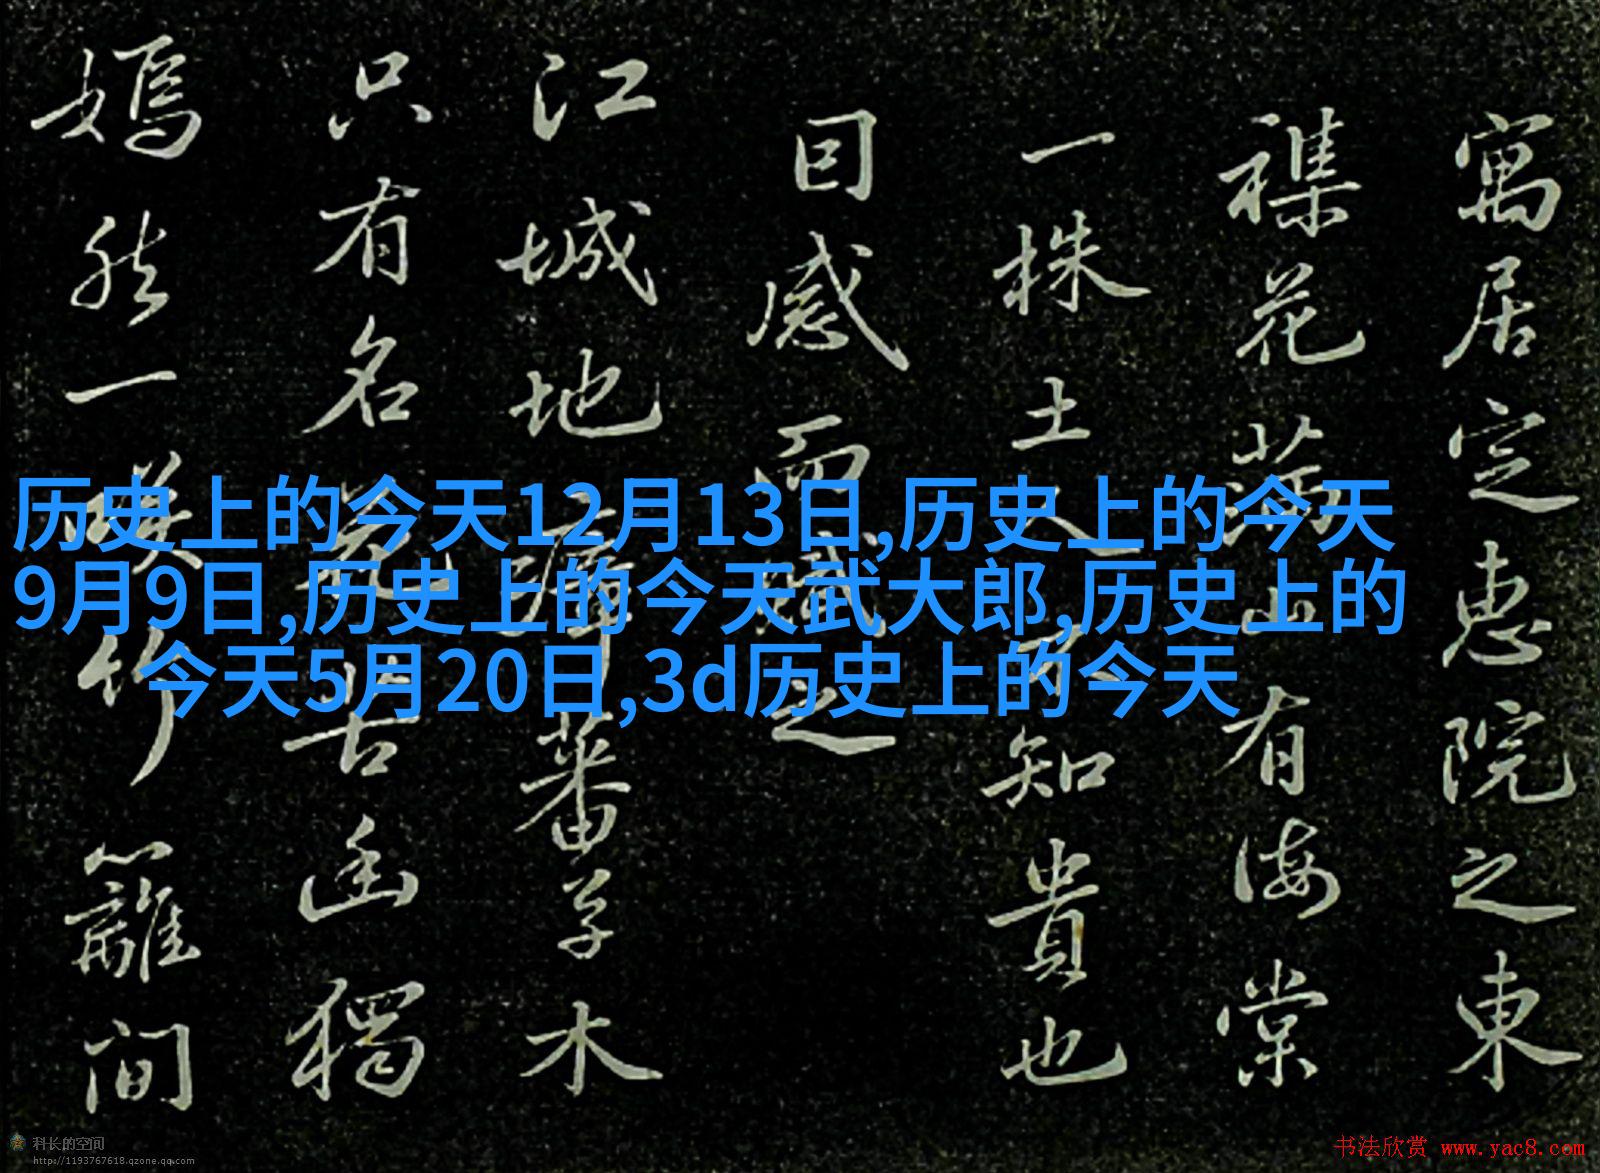 寓居定惠院之東
襍花滿山有海棠
一株土人不知貴也
囙感而賦之
江城地瘴蕃草木
只有名花苦幽獨
嫣然一咲竹籬間
历史上的今天12月13日,历史上的今天
9月9日,历史上的今天武大郎,历史上的
今天5月20日,3d历史上的今天
科长的空间
http://1193767618.qzone.qq.com
书法欣赏 www.yac8.com